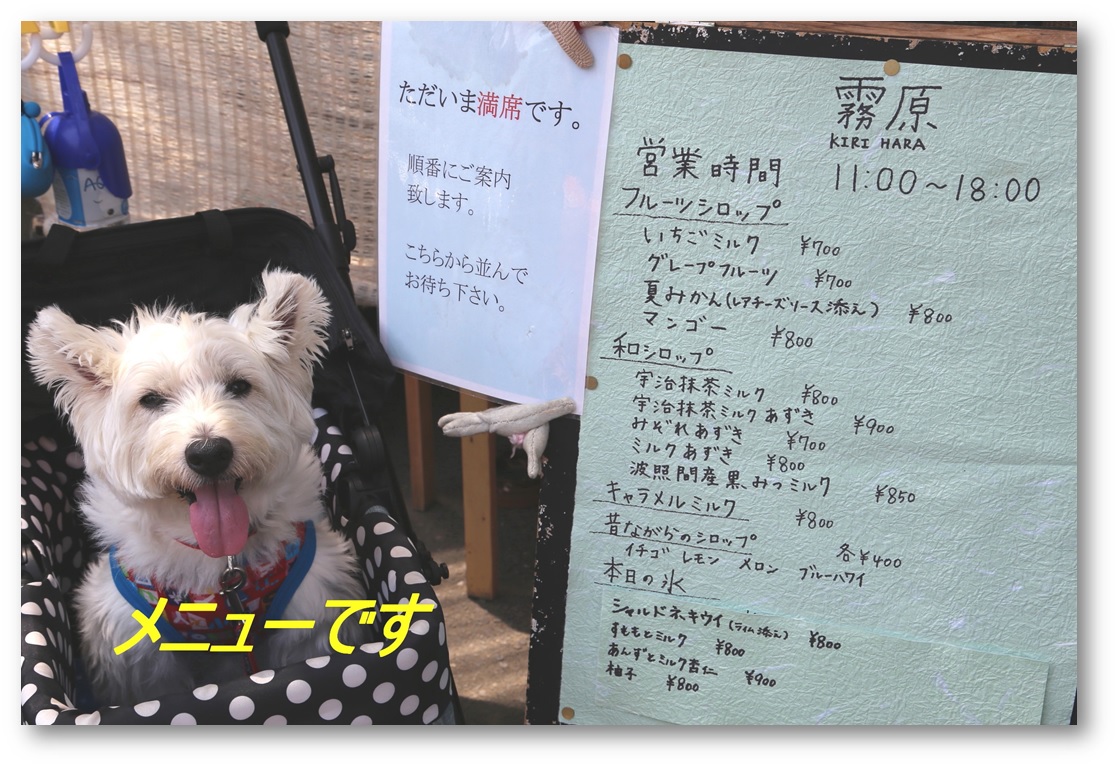 ただいま満席です。
順番にご案内
致します。
こちらから並んで
お待ち下さい。
霧原
KIRI HARA
営業時間 11:00～18:00
フルーツシロップ
いちごミルク ¥700
グレープフルーツ ¥700
夏みかん(レアチーズソース添え) ¥800
マンゴー ¥800
和シロップ
宇治抹茶ミルク ¥800
宇治抹茶ミルクあずき ¥900
みぞれあずき ¥700
ミルクあずき ¥800
波照間産黒みつミルク ¥850
キャラメルミルク ¥800
昔ながらのシロップ 各¥400
イチゴ レモン メロン ブルーハワイ
本日の氷
シャルドネキウイ(ライム添え) ¥800
すももとミルク ¥800
あんずとミルク杏仁 ¥900
柚子 ¥800
メニューです